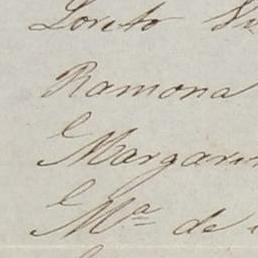 Loreto
Ramona
Margari
Mª de